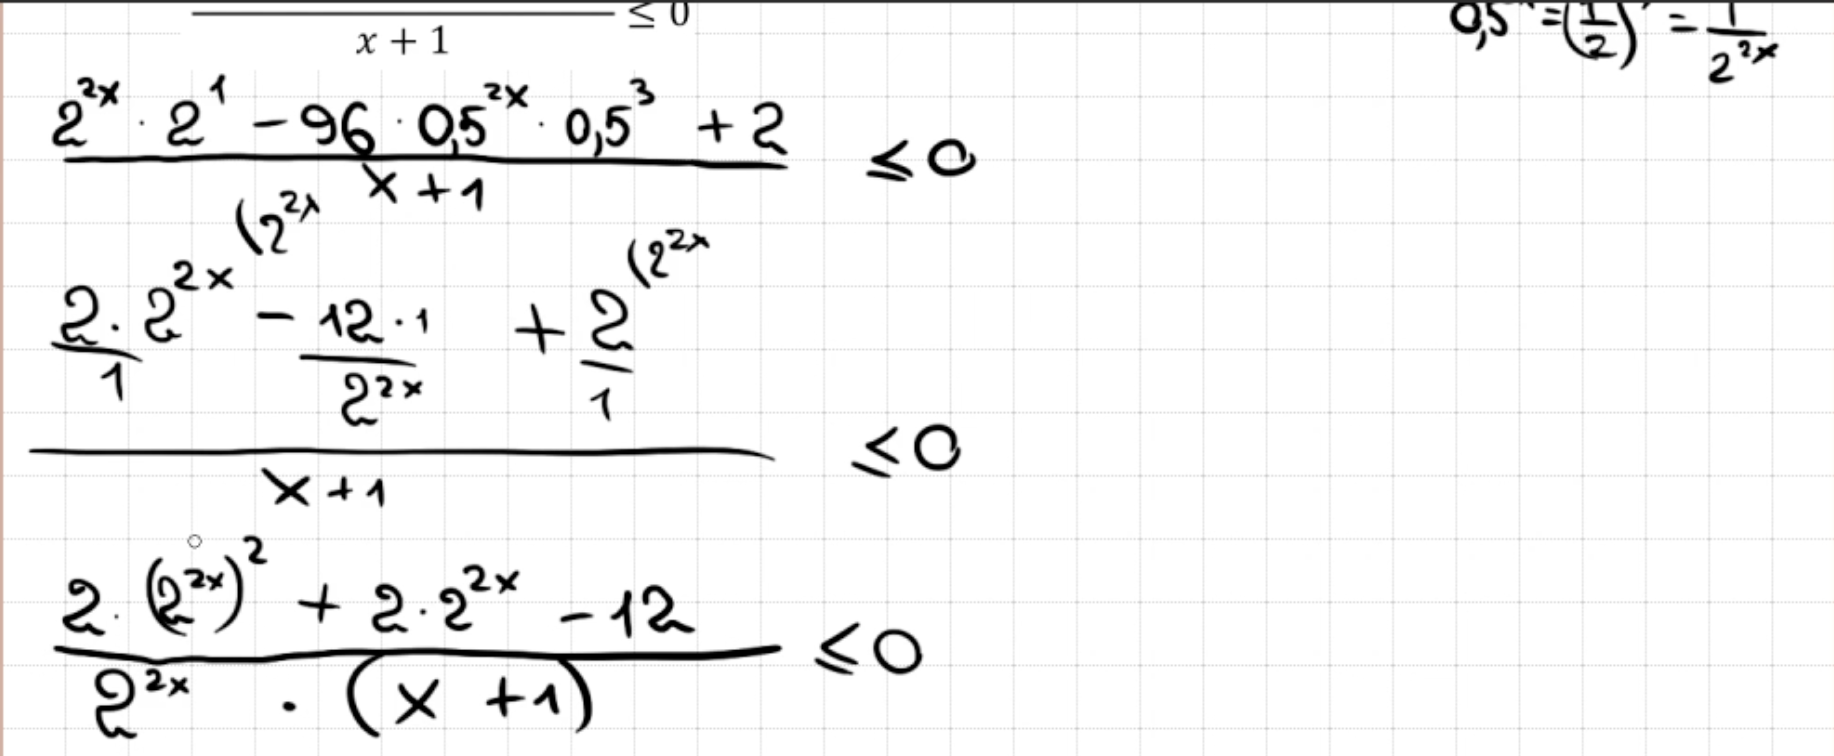 x + 1 ≤ 0
0,5 = (1/2) = 1/2^2x
2^2x · 2^1 - 96 · 0,5^2x · 0,5^3 + 2 ≤ 0
x + 1
(2^2x (2^2x
2 · 2^2x - 12 · 1 + 2
1 2^2x 1
≤ 0
x + 1
2 · (2^2x)^2 + 2 · 2^2x - 12 ≤ 0
2^2x · (x + 1)